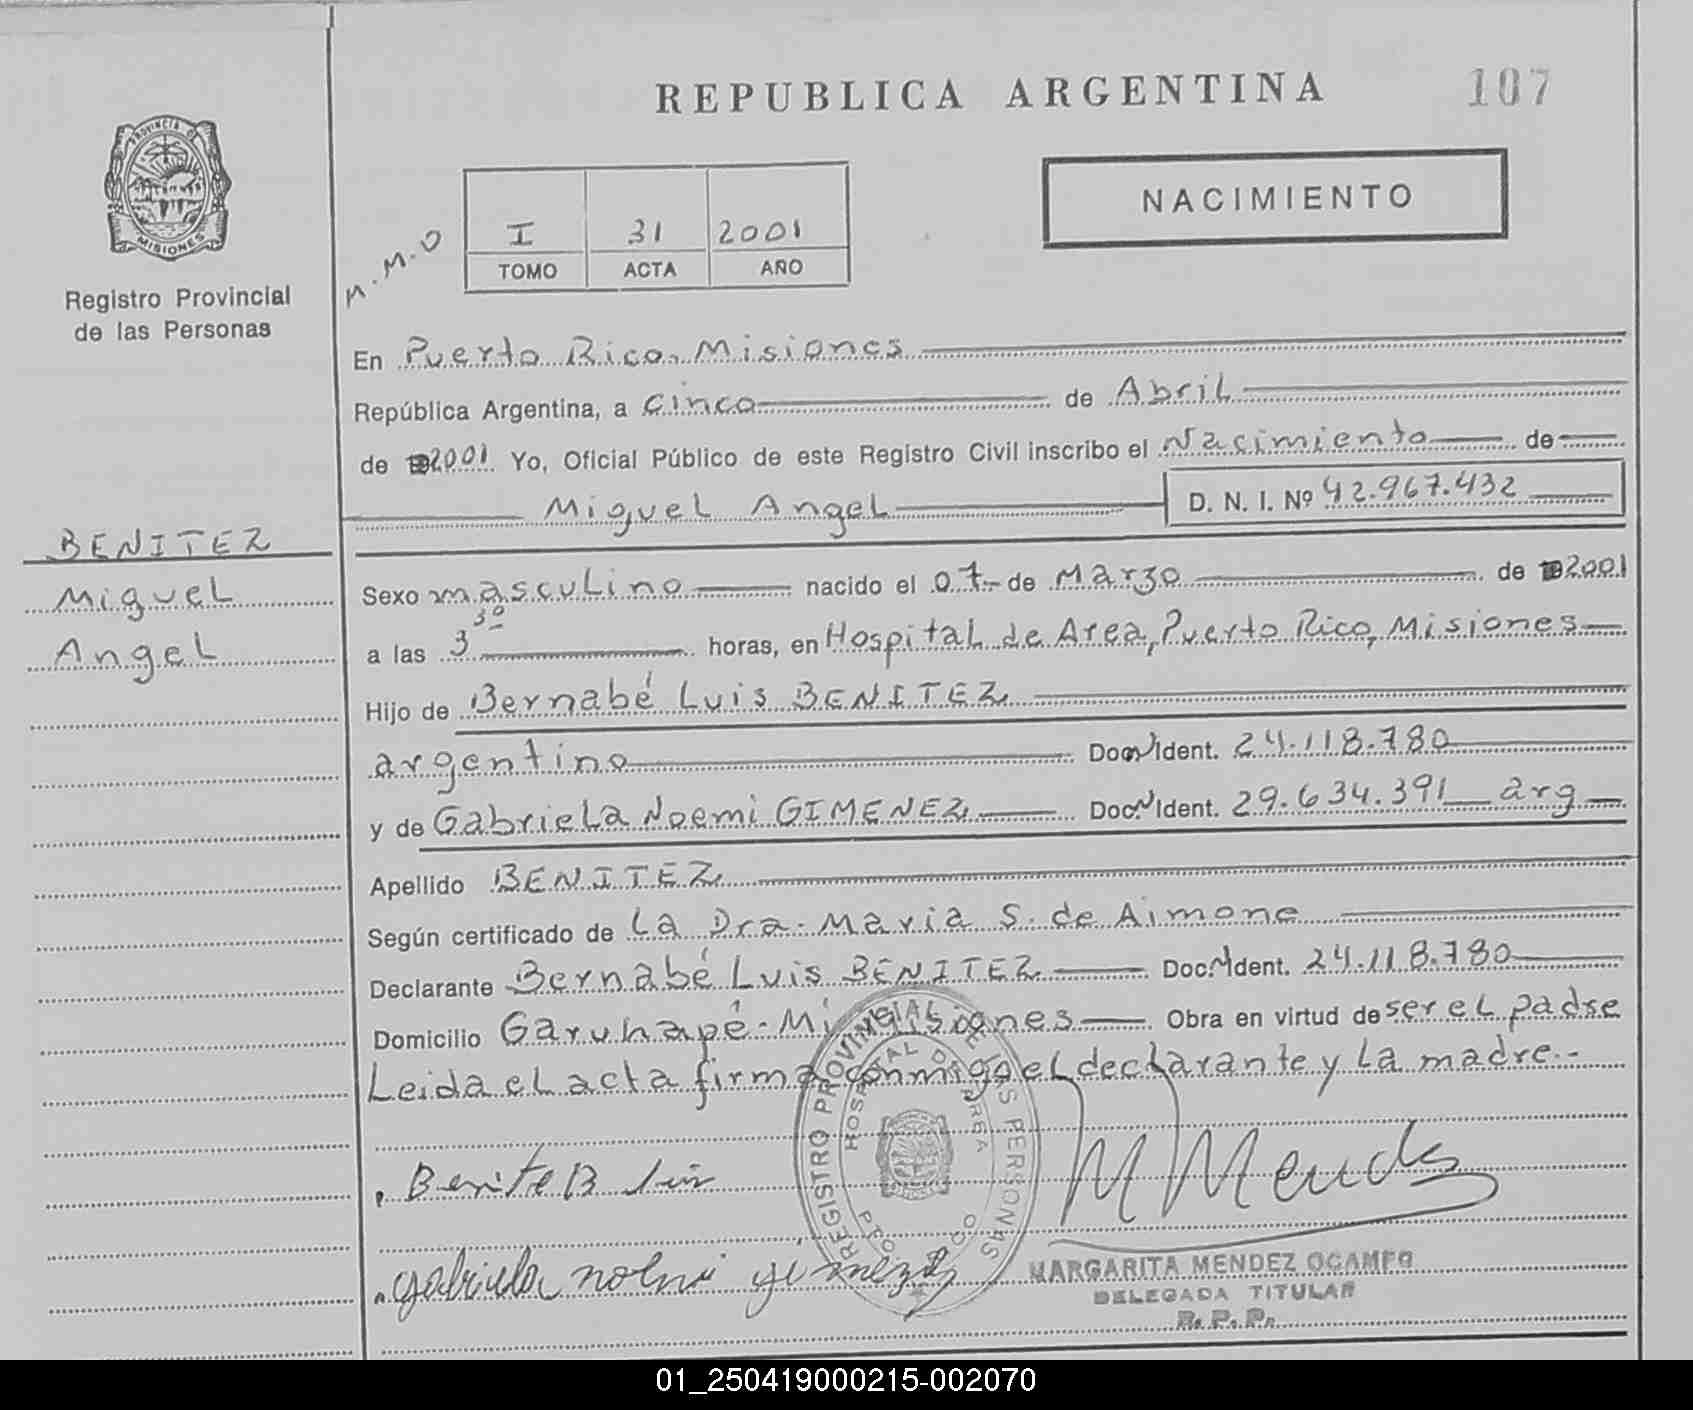 REPUBLICA ARGENTINA
107
PROVINCIA DE
MISIONES
Registro Provincial
de las Personas
NACIMIENTO
M.M.O
I 31 2001
TOMO ACTA AÑO
En Puerto Rico, Misiones
República Argentina, a cinco de Abril
de 2001 Yo, Oficial Público de este Registro Civil inscribo el Nacimiento de
Miguel Angel D. N. I. Nº 42.967.432
BENITEZ
Miguel
Angel
Sexo masculino nacido el 07 de Marzo de 2001
a las 3 30 horas, en Hospital de Area, Puerto Rico, Misiones
Hijo de Bernabé Luis BENITEZ
argentino Doc. Ident. 24.118.780
y de Gabriela Noemi GIMENEZ Doc. Ident. 29.634.391 arg
Apellido BENITEZ
Según certificado de La Dra. Maria S. de Aimone
Declarante Bernabé Luis BENITEZ Doc. Ident. 24.118.780
Domicilio Garuhapé - Misiones Obra en virtud de ser el padre
Leida el acta firma conmigo el declarante y La madre.-
REGISTRO PROVINCIAL DE LAS PERSONAS
HOSPITAL DE AREA
PTO. RICO
Benitez B Luis
M Mendez
gabriela noemi gimenez
MARGARITA MENDEZ OCAMPO
DELEGADA TITULAR
R. P. P.
01_250419000215-002070